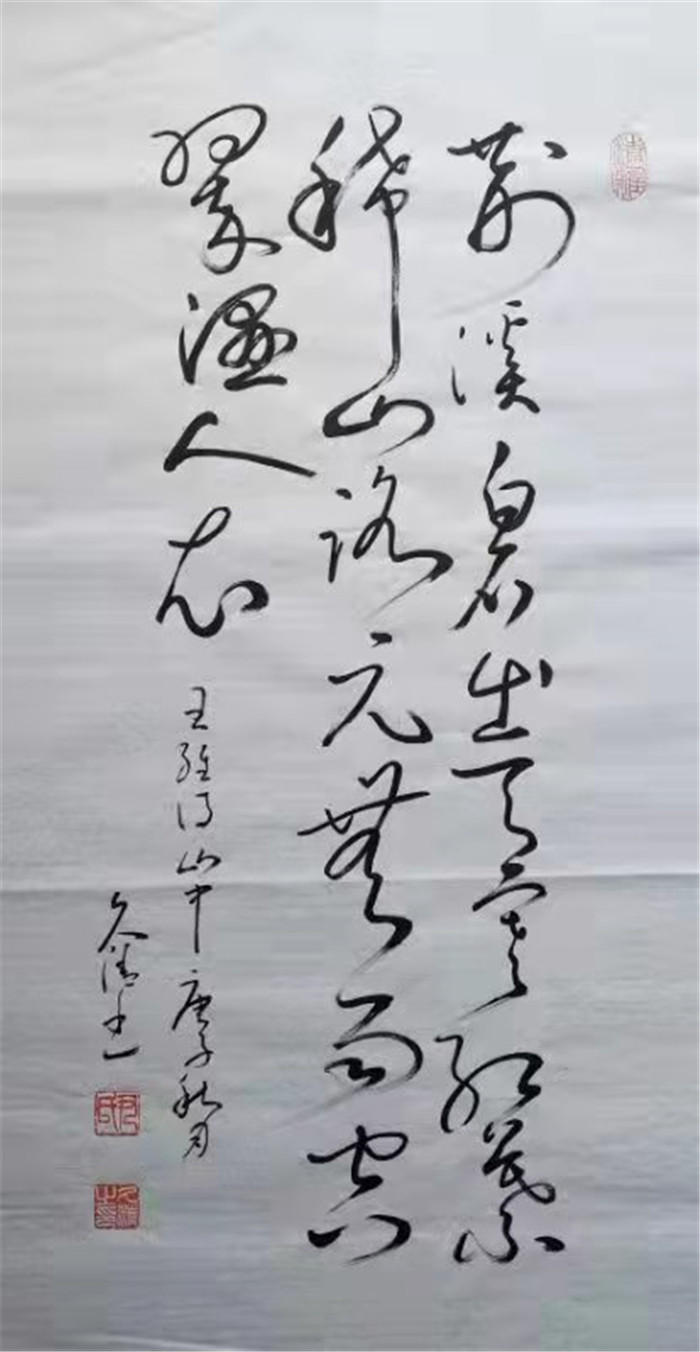 荆溪白石出天寒红葉
稀山路元無雨空
翠濕人衣
王维诗山中庚子秋月
久清书